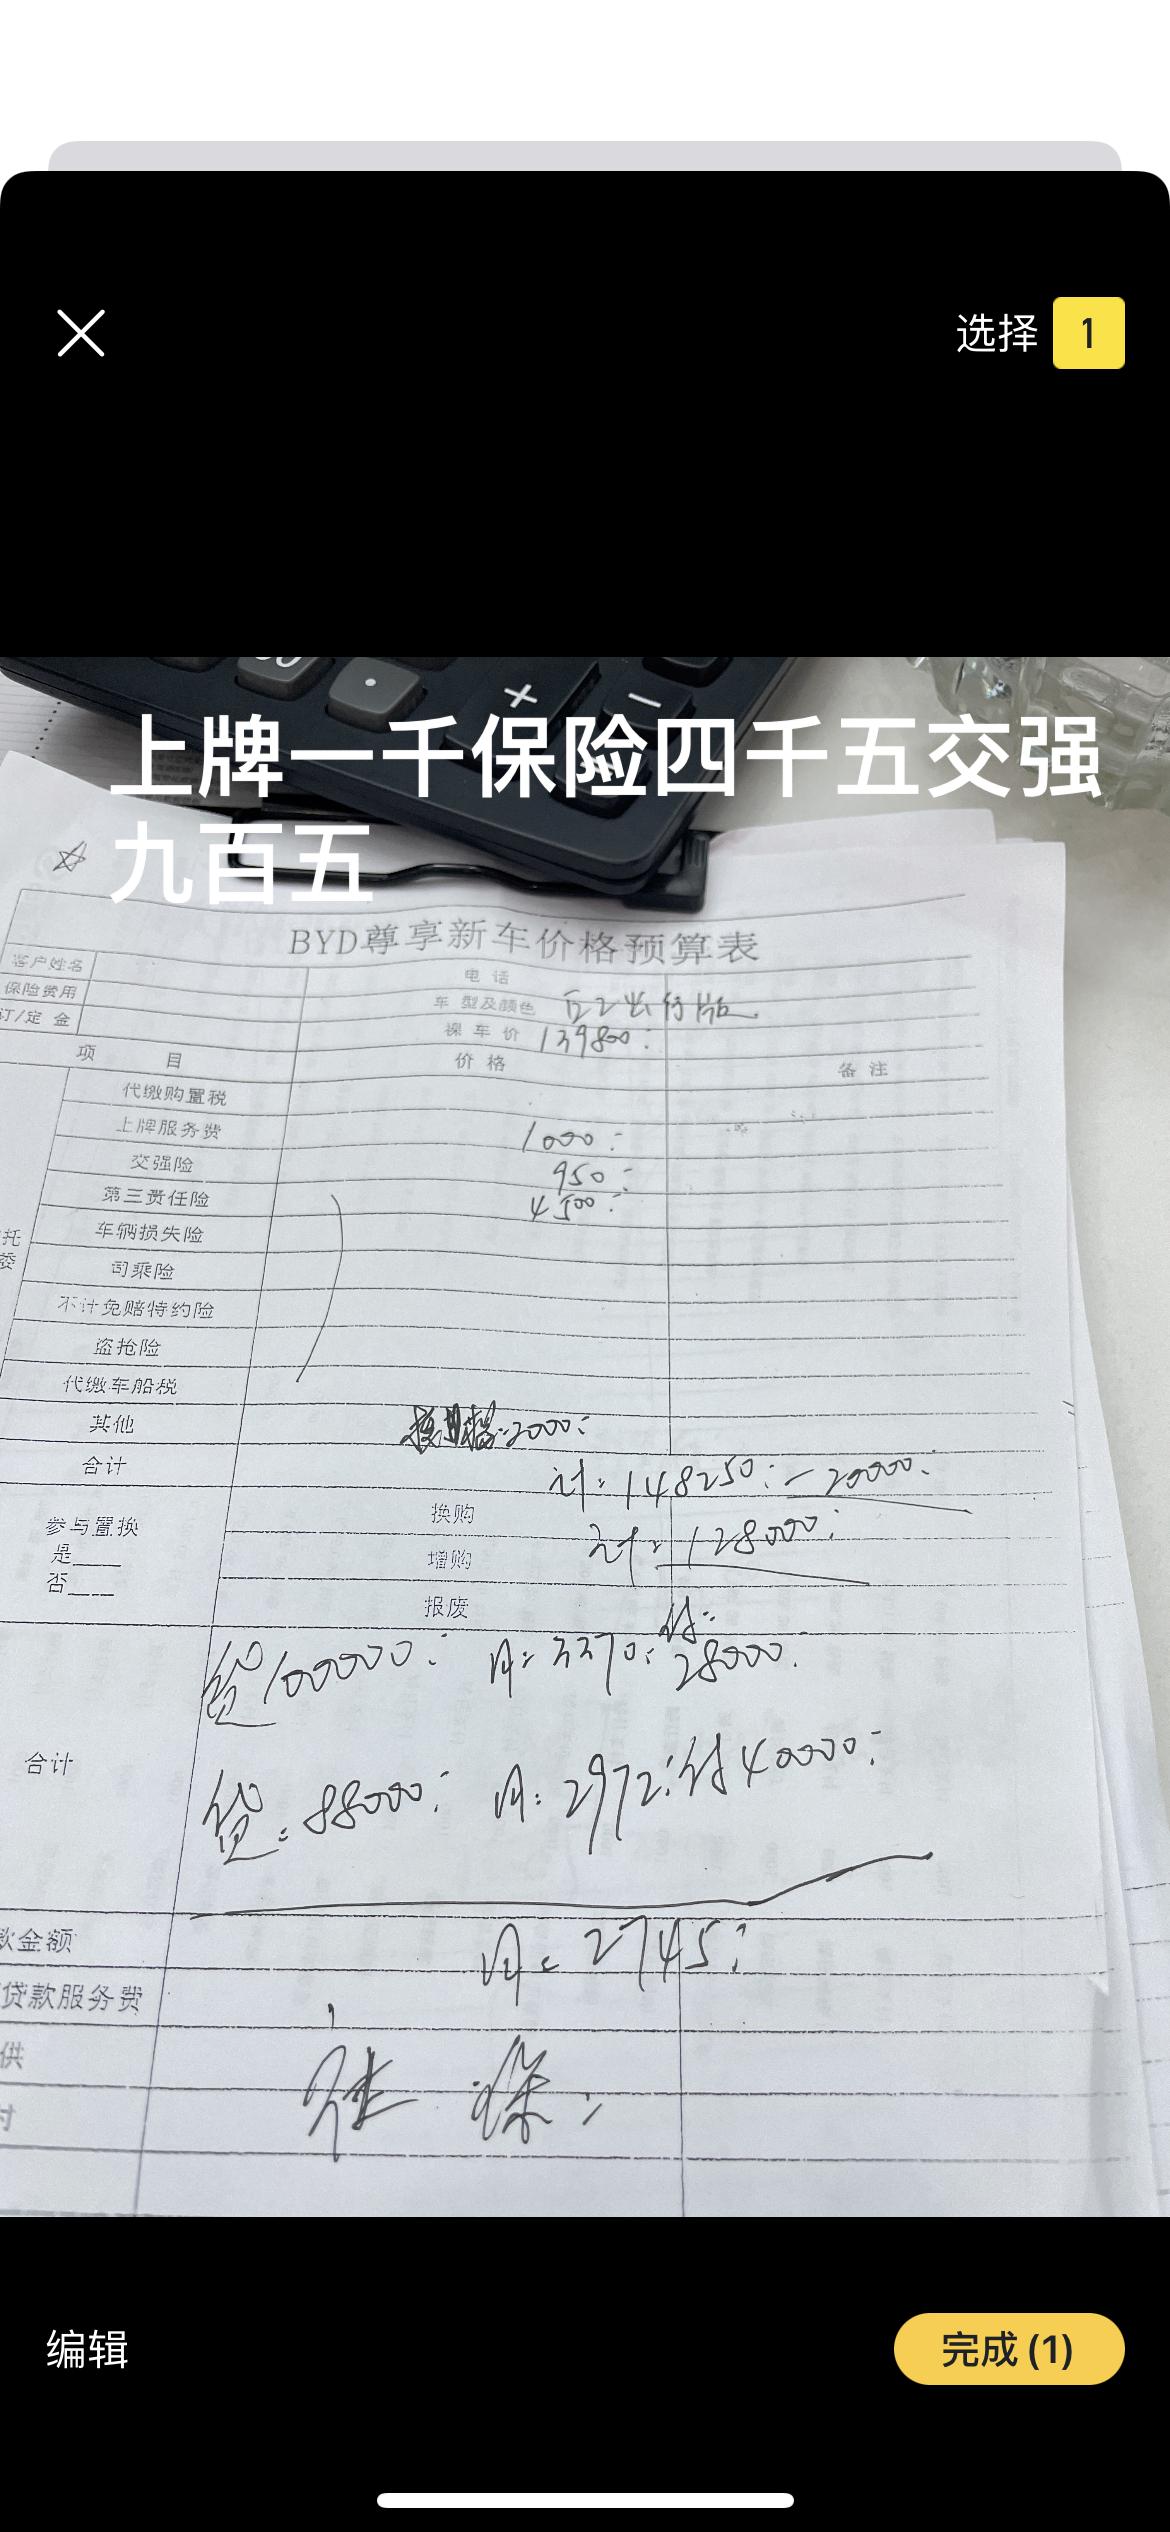 选择 1
上牌一千保险四千五交强
九百五
BYD尊享新车价格预算表
客户姓名 电话
保险费用 车型及颜色 E2出行版
订/定金 裸车价 139800:
项目 价格 备注
代缴购置税
上牌服务费 1000:
交强险 950:
第三责任险 4500:
车辆损失险
司乘险
不计免赔特约险
盗抢险
代缴车船税
其他 2000:
合计 计:148250:-20000:
参与置换 换购
是____ 增购 计:128000:
否____ 报废
付:
贷100000: 月:3370: 28000:
合计
贷:88000: 月:2972: 付40000:
款金额 月:2745:
贷款服务费
供
付
编辑 完成 (1)